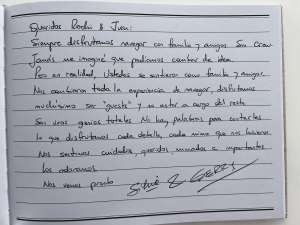 Queridos Rochi & Juan:
Siempre disfrutamos navegar con familia y amigos. Sin Crew
Jamás me imaginé que podíamos cambiar de idea.
Pero en realidad, Ustedes se sintieron como familia y amigos.
Nos cambiaron toda la experiencia de navegar, disfrutamos
muchísimo ser "guests" y no estar a cargo del resto
Son unos genios totales No hay palabras para contarles
lo que disfrutamos cada detalle, cada mimo que nos hicieron.
Nos sentimos cuidados, queridos, mimados e importantes
los adoramos
Nos vemos pronto